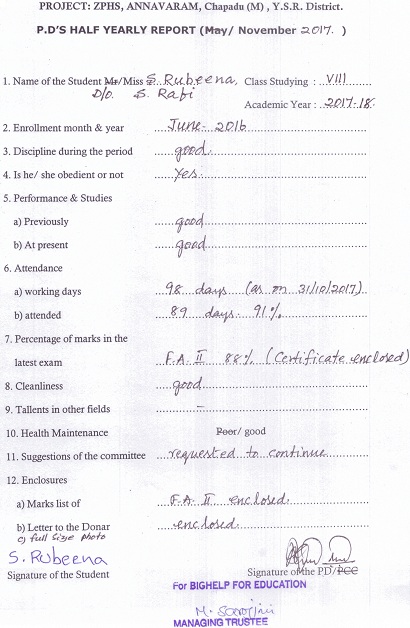 PROJECT: ZPHS, ANNAVARAM, Chapadu (M) , Y.S.R. District.
P.D'S HALF YEARLY REPORT (May/ November 2017. )
1. Name of the Student Mr/Miss S. Rubeena, Class Studying : VIII
D/o. S. Rafi
Academic Year : 2017-18.
2. Enrollment month & year June- 2016
3. Discipline during the period good.
4. Is he/ she obedient or not Yes.
5. Performance & Studies
a) Previously good
b) At present good
6. Attendance
a) working days 98 days (as on 31/10/2017)
b) attended 89 days- 91%
7. Percentage of marks in the
latest exam F.A. II 88% (Certificate enclosed)
8. Cleanliness good
9. Tallents in other fields –
10. Health Maintenance Poor/ good
11. Suggestions of the committee requested to continue
12. Enclosures
a) Marks list of F.A. II enclosed.
b) Letter to the Donar enclosed.
c) full size photo
S. Rubeena
Signature of the Student Signature of the PD/PCC
For BIGHELP FOR EDUCATION
M. Sarojini
MANAGING TRUSTEE